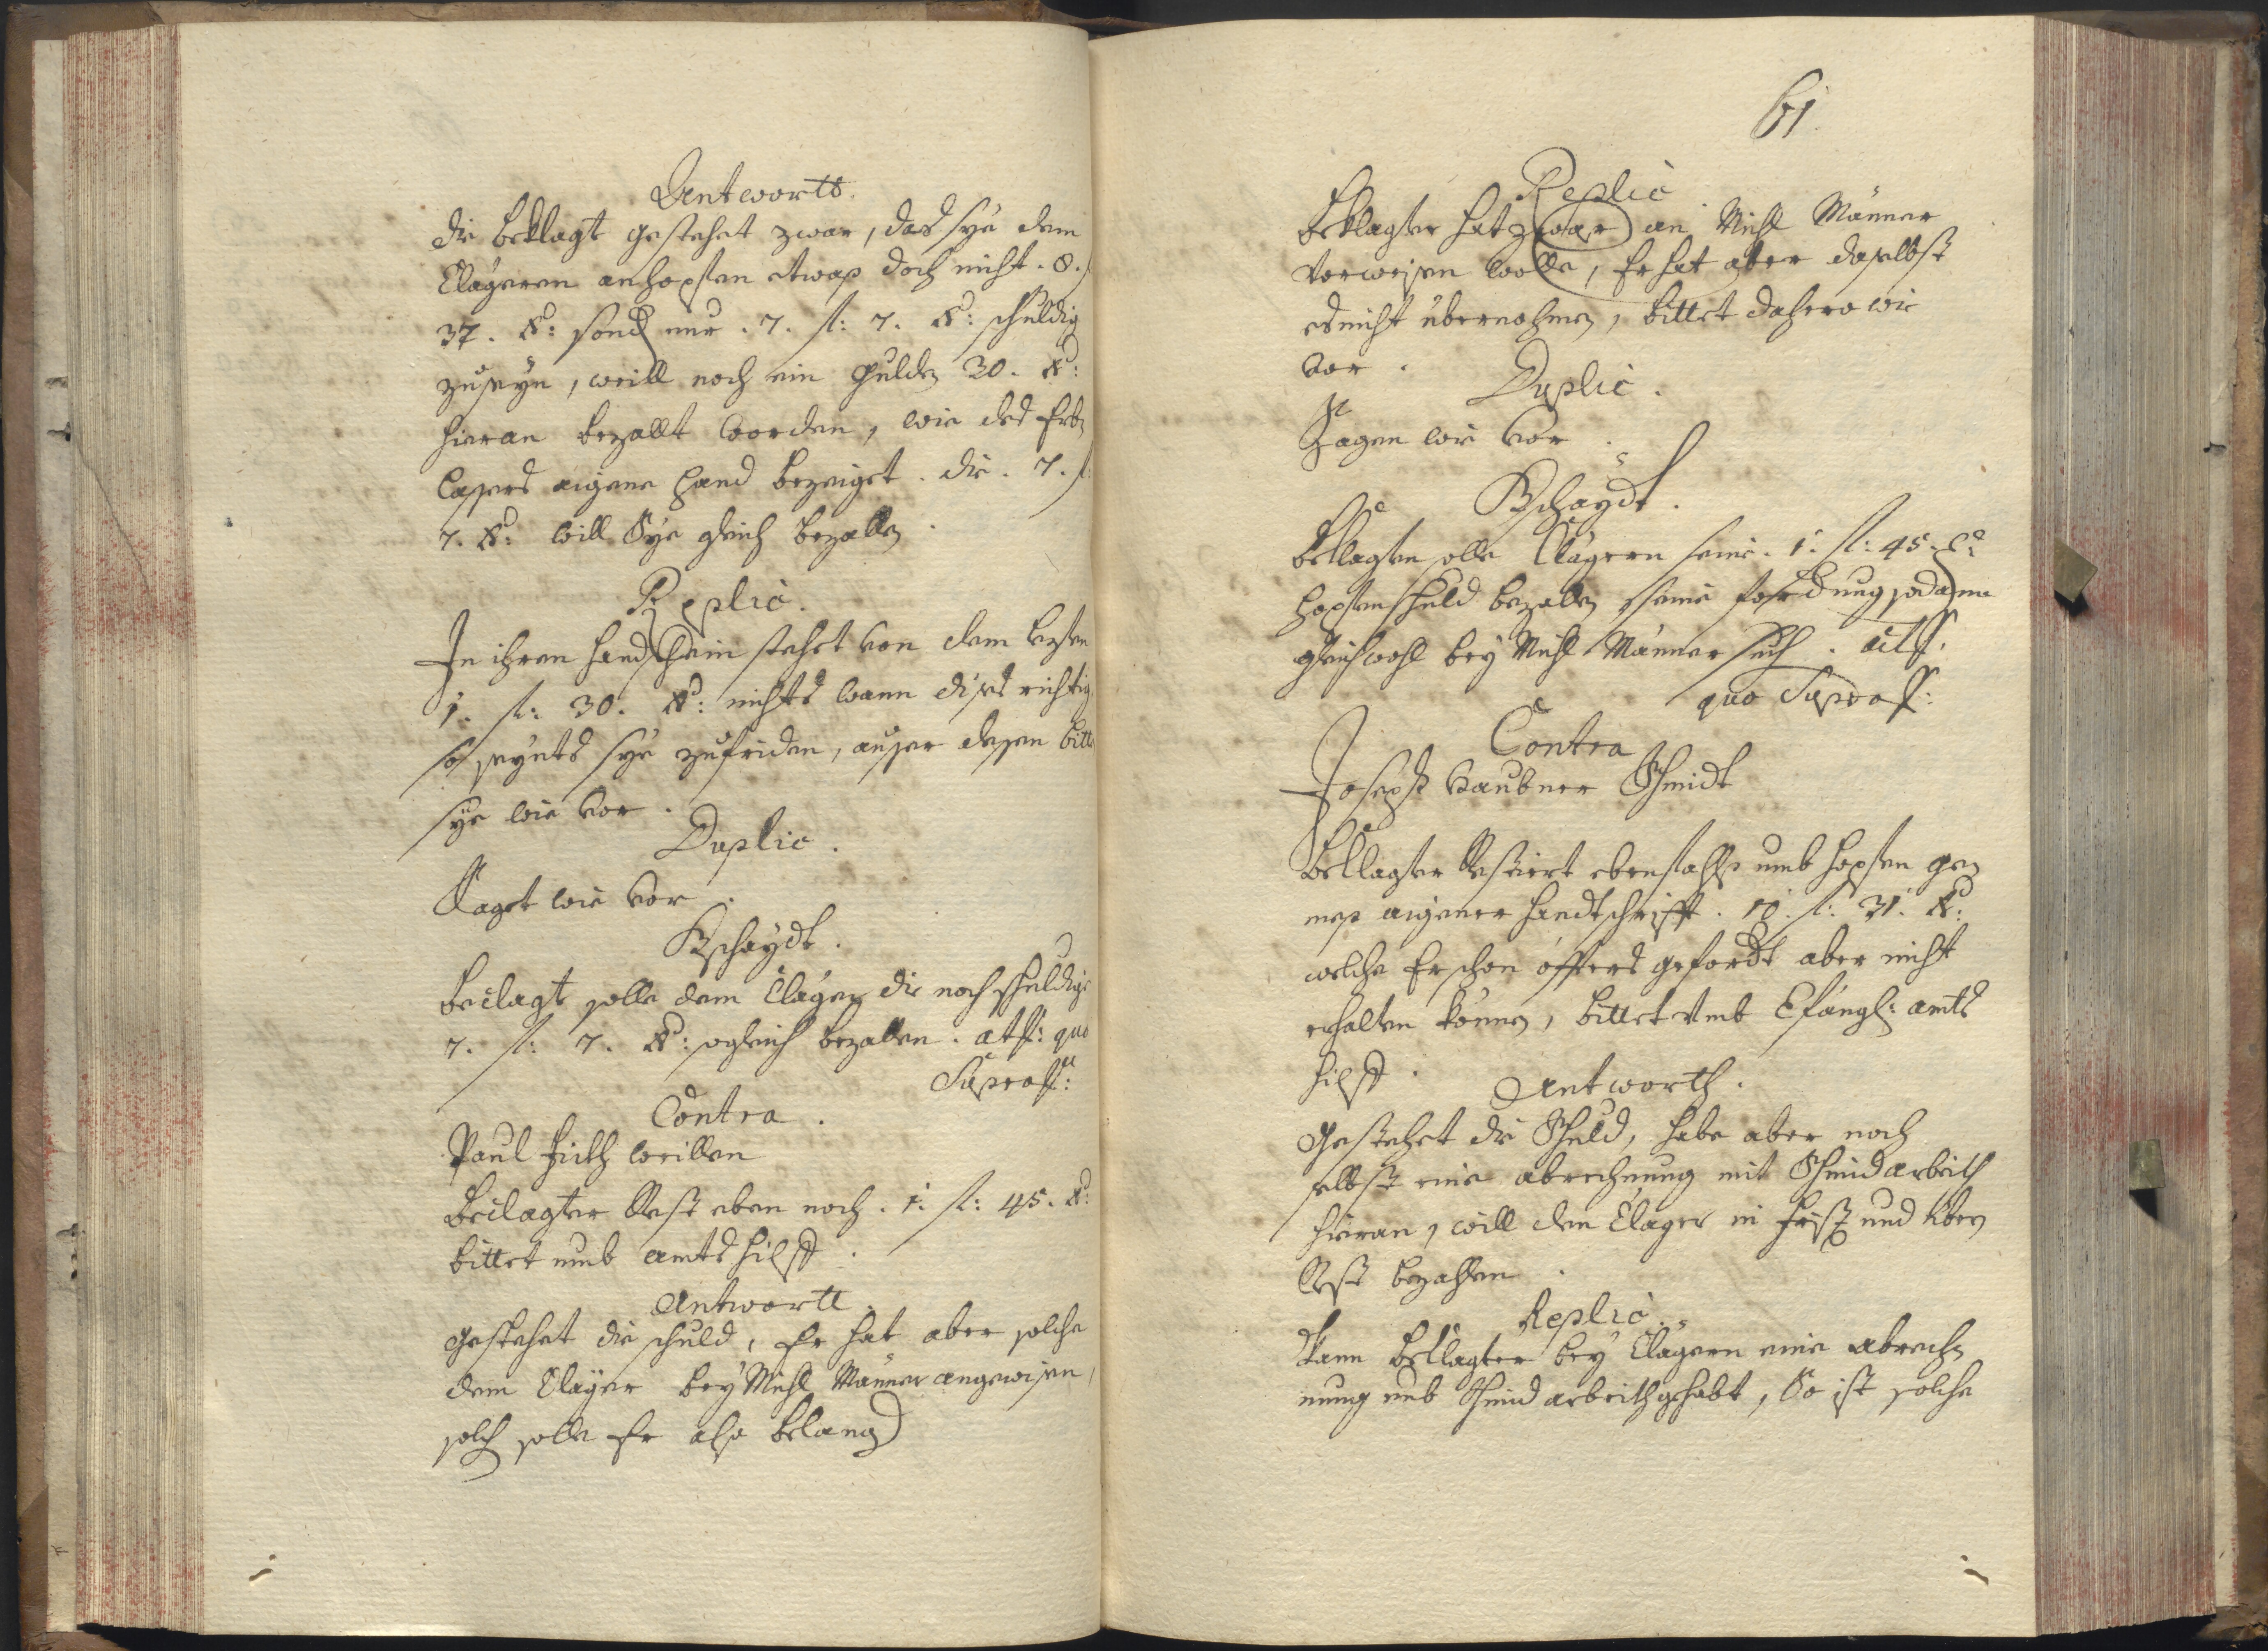 Antwortt.
die beklagt gestehet zwar, das sye dem
Clägeren an hopfen etwas doch nicht. 8. f
37. x: sond nur. 7. fl: 7. x: schuldig
zuseyn, weill noch ein gulden 30. x:
hieran bezallt worden, wie des
aigene hand bezeiget. die. 7. f
7. x: will Sye gleich bezallen
Replic.
In ihren handschein stehet von dem lezten
1. fl: 30. x: nichts wann dises richtig,
so seynts sye zufriden, auser desen bitt
sye wie vor.
Duplic.
Saget wie vor.
Bschaydt.
Beclagt solle dem Cläger die noch schuldige
7. fl: 7. x: sogleich bezallen. act: quo
Supra
Contra.
Paul willen
Beclagter Rest eben noch. 1. fl: 45. x:
bittet umb ambts hilff.
Antwortt.
gestehet die schuld, Er hat aber solche
dem Clager bey Michl Männer angewisen,
solch solle Er also belang
61.
Replic
Beklagter hat zwar an Michl Männer
verweisen wolle, Er hat aber daselbst
es nicht übernohmen, bittet dahero wie
vor.
Duplic.
Sagen wie vor.
Bschaydt.
Beklagter solle Clägern seine. 1. fl: 45. x:
hopfenschuld bezallen seine fordung sodann
gleichwohl bey Michl Männer such.
quo Supra
Contra
Joseph Schmidt
Beklagter Restiert ebenfahls umb hopfen ge
mess aigener handtschrifft. 10. fl: 31. x:
welche Er schon öffters gefordt aber nicht
erhalten können, bittet umb ambts
hilff.
Antworth.
Gestehet die Schuld, habe aber noch
selbst eine abrechnung mit Schmidarbeith
hieran, will den Clager in frist und
Rest bezahlen.
Replic.
Kann Beklagter bey Clägern eine abrech
nung umb Schmidarbeith gehabt, So ist solche